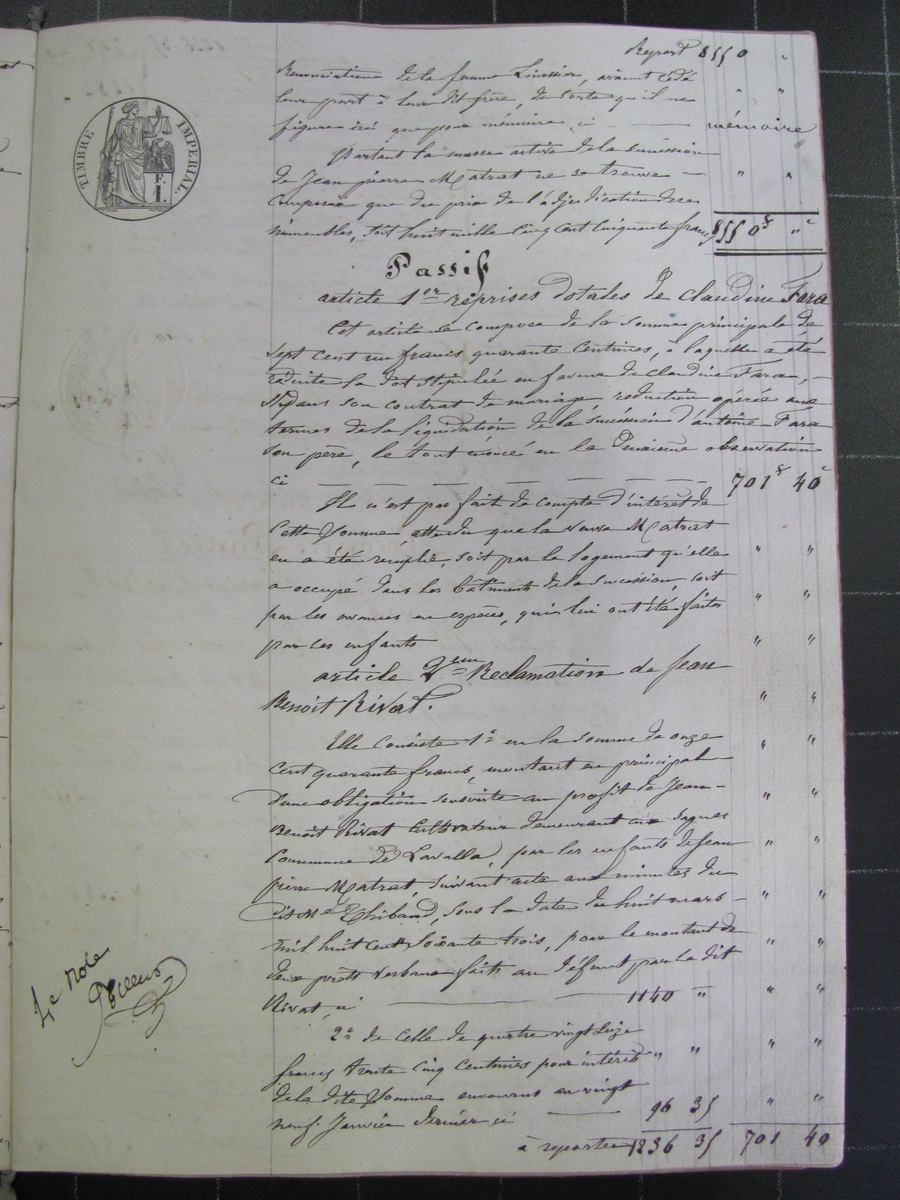 TIMBRE IMPERIAL.
F. I.
Report 8550 "
Renonciation de la femme , avaient cédé
leur part à leur dit frère, de sorte qu'il ne " "
figure ici que pour mémoire ci — mémoire
Partant la masse active de la succession
de Jean pierre Matrat ne se trouve — " "
composée que du prix de l'adjudication des
immeubles, soit huit mille cinq cent cinquante francs 8550 f " c
Passif
article 1er reprises dotales de claudine Fara
Cet article se compose de la somme principale de
sept cent un francs quarante centimes, à laquelle a été
réduite la dot stipulée en faveur de claudine Fara, —
dans son contrat de mariage réduction opérée aux
termes de la liquidation de la succession d'antoine Fara
son père, le tout énoncé en la Deuxième observation
ci — — — — — — — 701 f 40 c
Il n'est pas fait de compte d'intérêt de
cette somme attendu que la veuve Matrat
en a été remplie, soit par le logement qu'elle " "
a occupé dans les bâtiments de la succession, soit
par les avances en espèces, qui lui ont été faites " "
par ses enfants " "
article 2eme Reclamation de Jean
Benoit Rivat. " "
Elle consiste 1° en la somme de onze " "
cent quarante francs, montant en principal
d'une obligation souscrite au profit de Jean — " "
Benoit Rivat cultivateur demeurant aux Sagnes
commune de Lavalla, par les enfants de Jean " "
pierre Matrat, suivant acte aux minutes du
dit Me Thibaud, sous la date du huit mars — " "
mil huit cent soixante trois, pour le montant de " "
deux prêts verbaux faits au défunt par le dit
Rivat, ci — — 1140 " " "
2° de celle de quatre vingt seize
francs trente cinq centimes pour intérêts " " " "
de la dite somme encourus au vingt
neuf Janvier dernier ci — 96 35 " "
à reporter 1236 35 701 40
4e Role